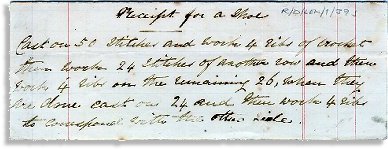 Receipt for a Shoe
Cast on 50 Stitches and work 4 ribs of crochet
then work 24 stitches of another row and then
work 4 ribs on the remaining 26, when they
are done cast on 24 and then work 4 ribs
to correspond with the other side.